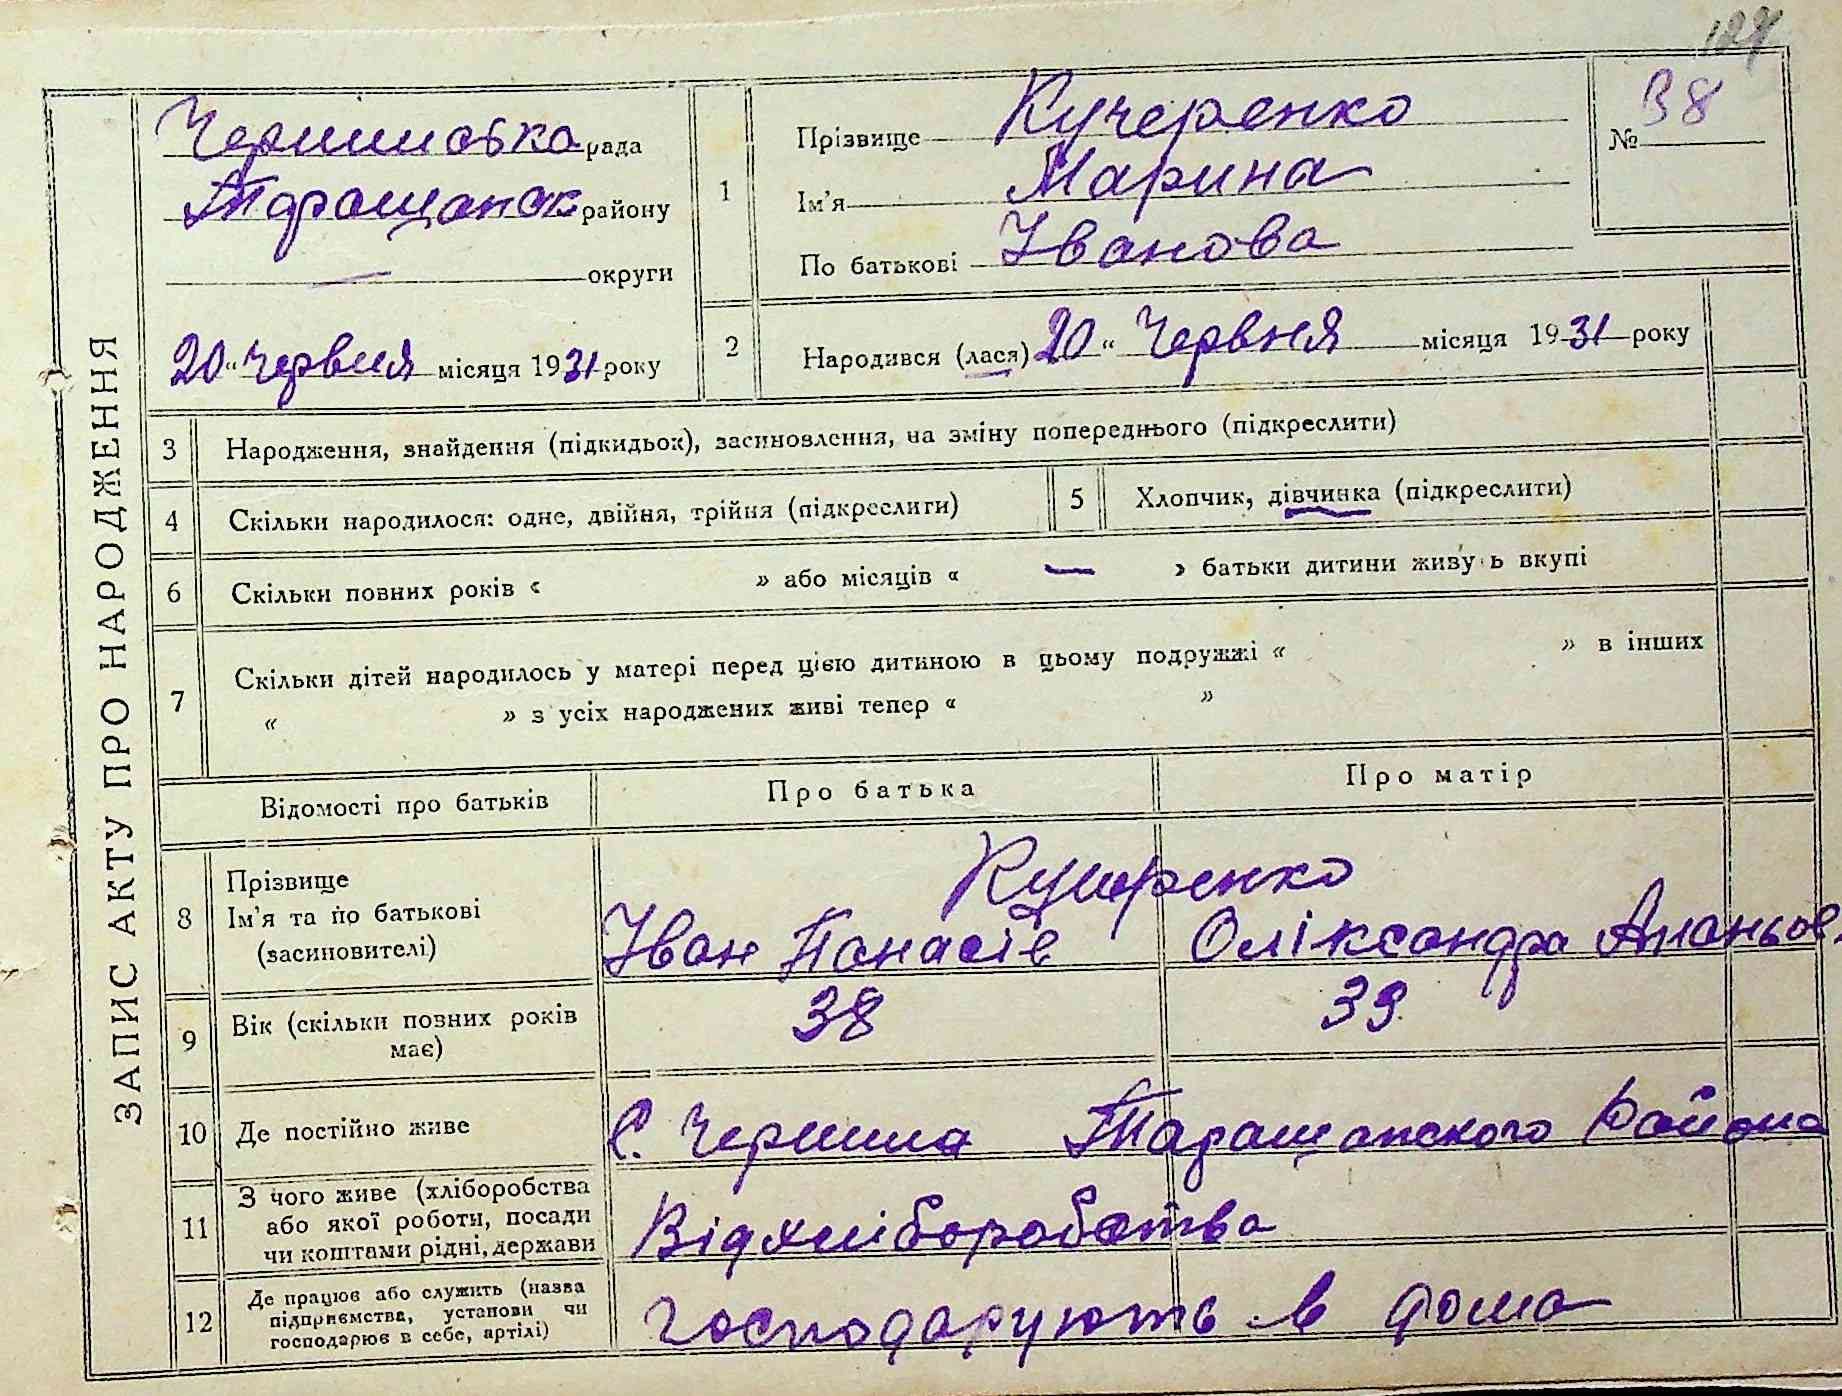 Чернинська рада
Таращанск району
— округи
20 „ Червня місяця 1931 року
1
Прізвище Кучеренко
Ім'я Марина
По батькові Іванова
№ 38
2
Народився (лася) 20 “ Червня місяця 1931 року
ЗАПИС АКТУ ПРО НАРОДЖЕННЯ
3 Народження, знайдення (підкидьок), засиновлення, на зміну попереднього (підкреслити)
4 Скільки народилося: одне, двійня, трійня (підкреслити)
5 Хлопчик, дівчинка (підкреслити)
6 Скільки повних років « » або місяців « — » батьки дитини живуть вкупі
7 Скільки дітей народилось у матері перед цією дитиною в цьому подружжі « » в інших
« » з усіх народжених живі тепер « »
Відомості про батьків
Про батька
Про матір
8 Прізвище
Ім'я та по батькові
(засиновителі)
Кучеренко
Іван Панасів Оліксандра Ананьов.
9 Вік (скільки повних років
має)
38 39
10 Де постійно живе
С. Чернина Таращанского Района
11 З чого живе (хліборобства
або якої роботи, посади
чи коштами рідні, держави
Від хліборобства
12 Де працює або служить (назва
підприємства, установи чи
господарює в себе, артілі)
господарують в дома